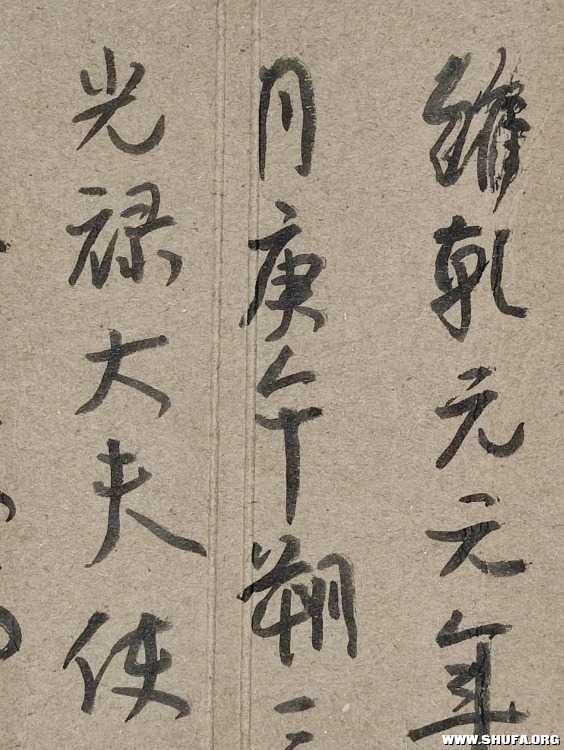 維乾元元年
月庚午朔二
光祿大夫使
WWW.SHUFA.ORG